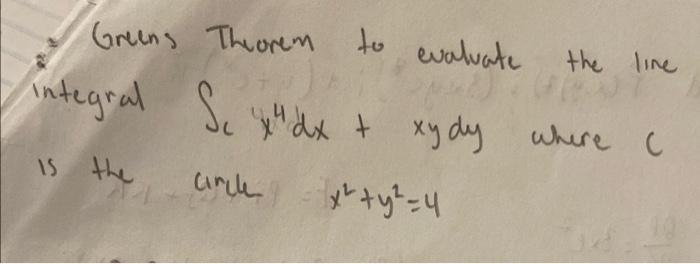 Greens Theorem to evaluate the line
integral ∫c x⁴dx + xydy where C
is the circle x²+y²=4